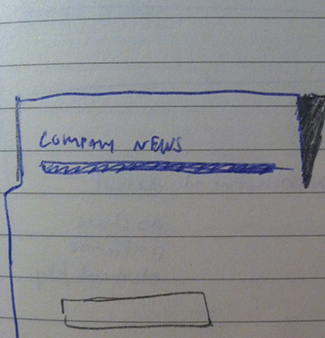 COMPANY NEWS